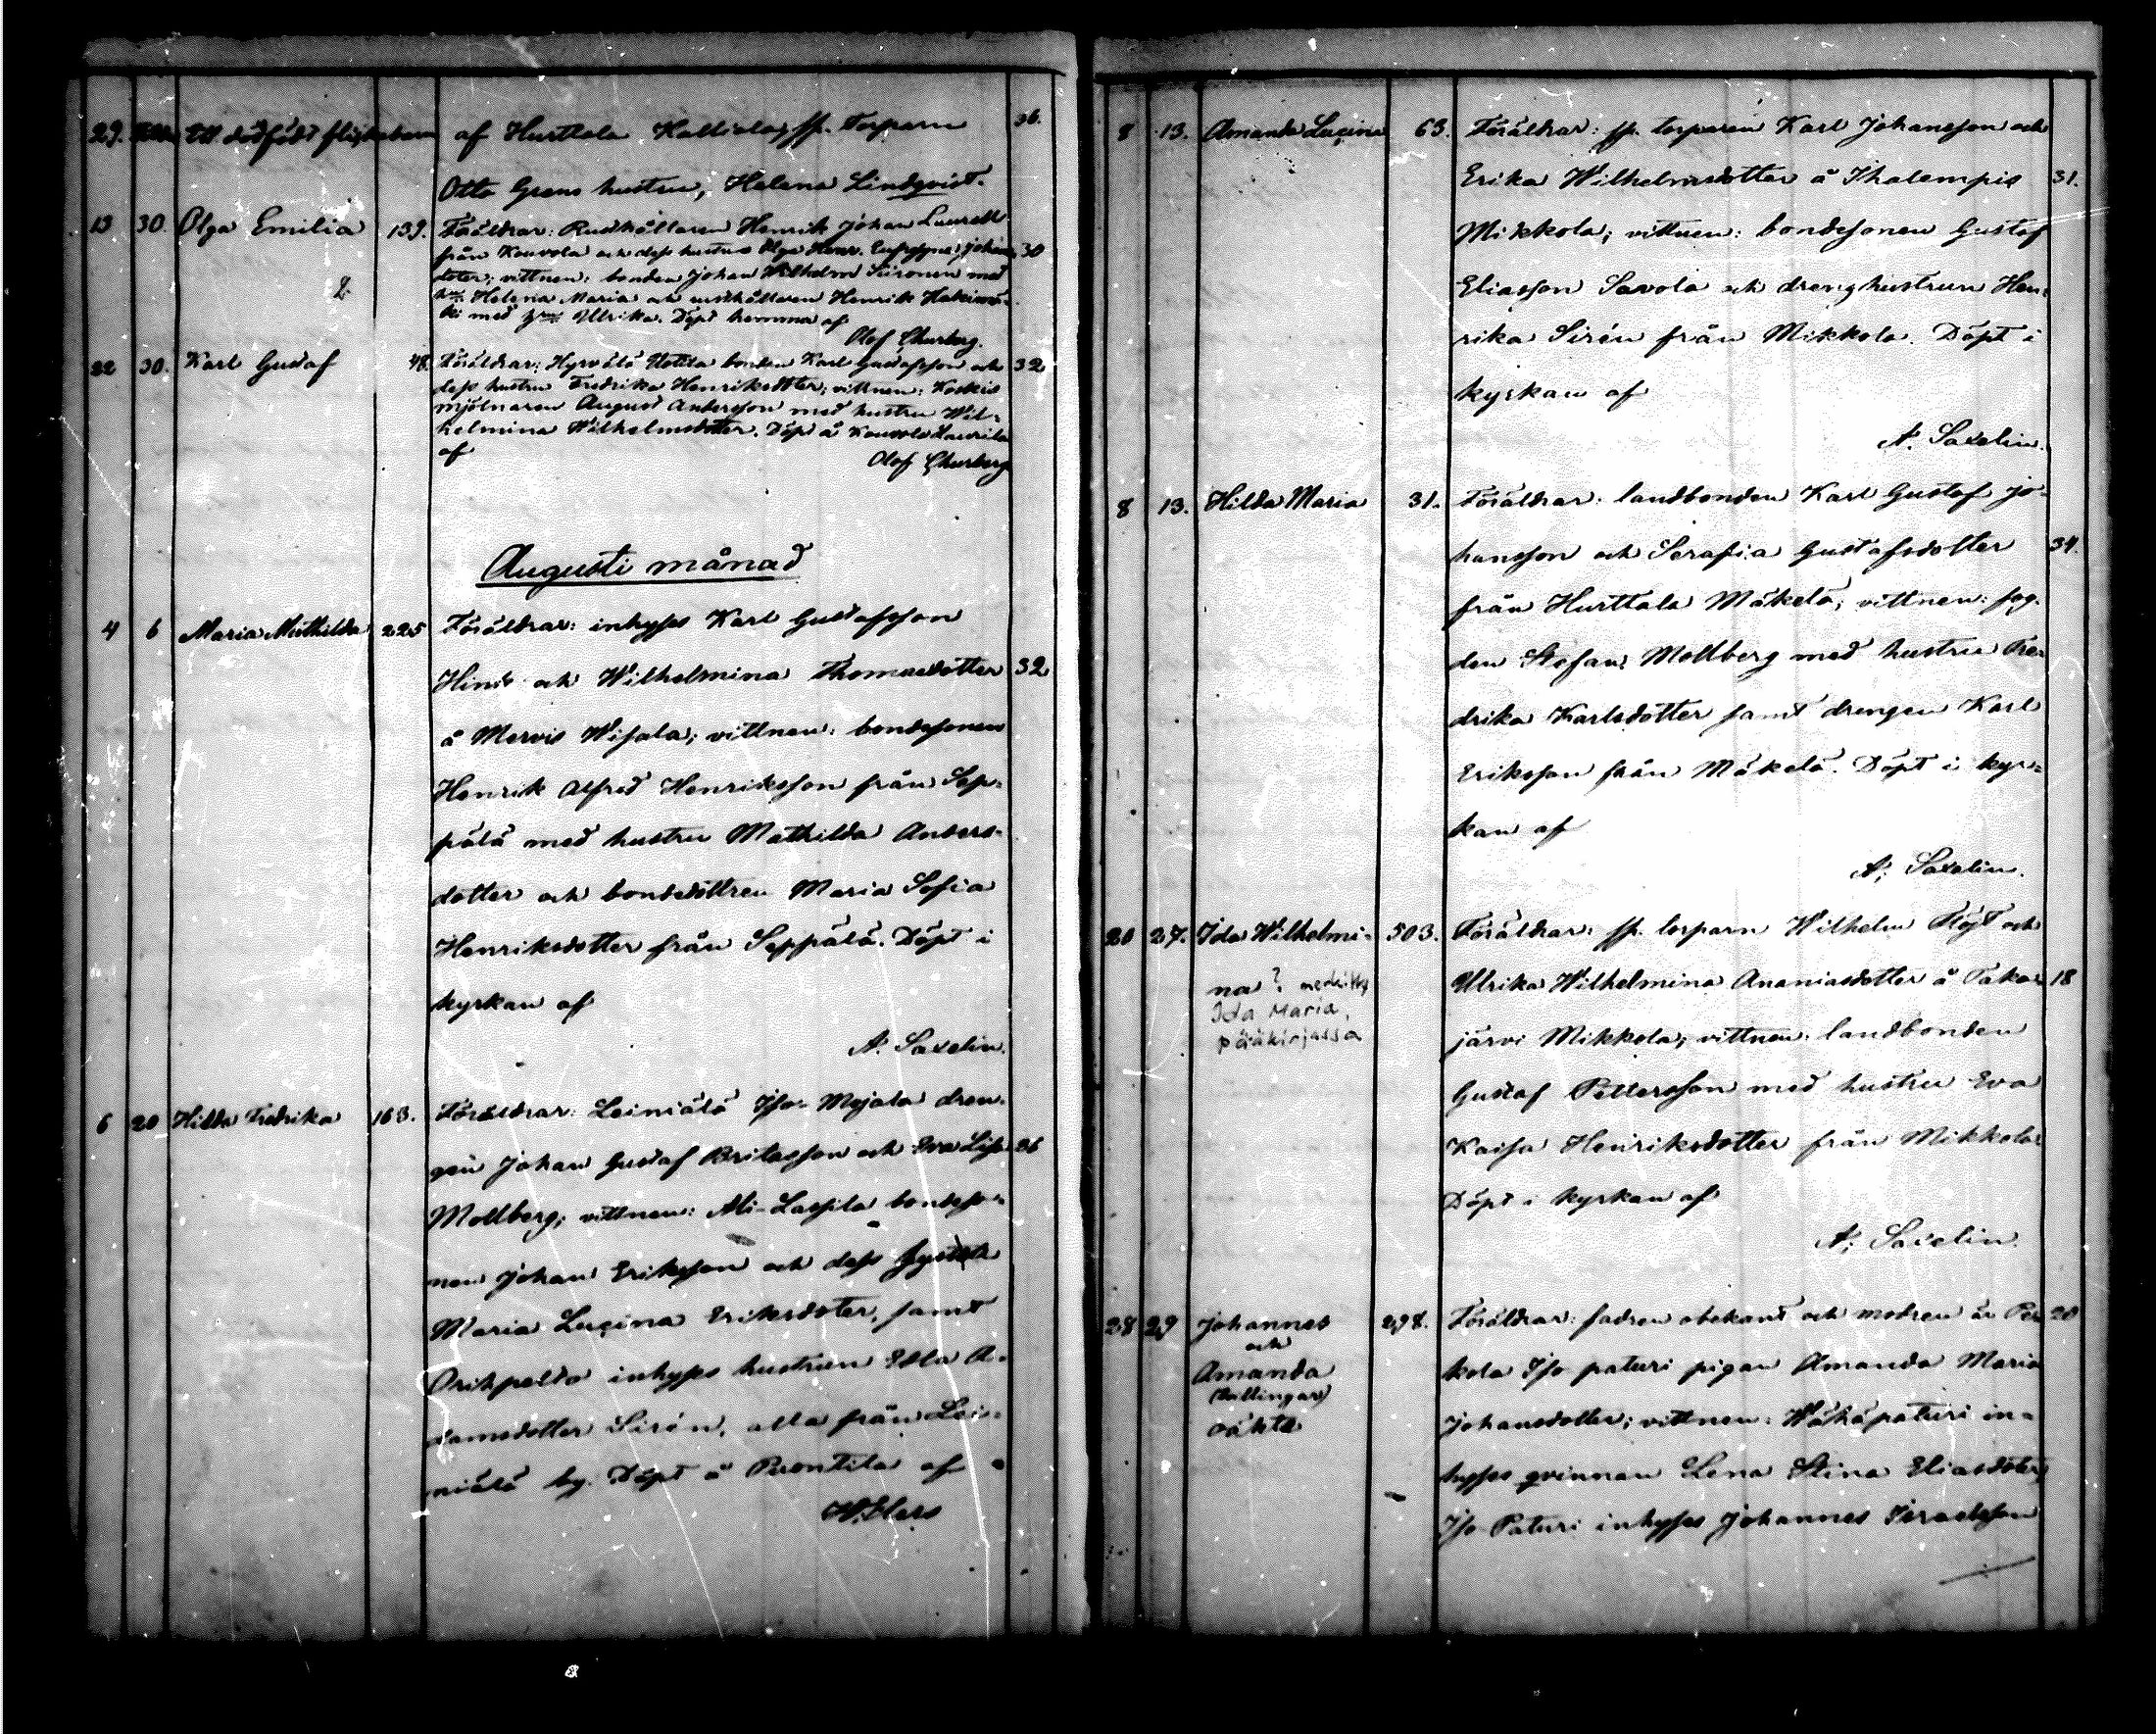 29. Ett dödfödt flickebarn af Hurttala Kalliola, sp. torparn 36.
Otto Grens hustru, Helena Lindqvist.
13 30. Olga Emilia 139. Föräldrar: Rusthållaren Henrik Johan Laurell
från Kouvola och dess hustru Olga Johans 30
doter; vittnen: bonden Johan Wilhelm Siironen med
hu: Helena Maria och rusthållaren Henrik
ki med hu: Ulrika. Döpt hemma af
Olof Churberg.
22 30. Karl Gustaf 48. Föräldrar: Hyrvälä Uotila bonden Karl Gustafsson och 32
dess hustru Fredrika Henriksdoter; vittnen: Koskis
mjölnaren August Andersson med hustru Wil-
helmina Wilhelmsdotter. Döpt å Kouvola
af
Olof Churberg
Augusti månad
4 6 Maria Mathilda 225 Föräldrar: inhyses Karl Gustafsson
och Wilhelmina Thomasdotter 32
å Mervis Wisala; vittnen: bondesonen
Henrik Alfred Henriksson från Sep-
pälä med hustru Mathilda Anders-
dotter och bondedottren Maria Sofia
Henriksdotter från Seppälä. Döpt i
kyrkan af
A. Saxelin.
6 20 Hilda Fredrika 163. Föräldrar: Leiniälä Iso-Mojala dren-
gen Johan Gustaf och Eva Lisa 26
Mollberg; vittnen: Ali-Lassila bondeso-
nen Johan Eriksson och dess
Maria Lucina Eriksdoter, samt
Orihpelda inhyses hustrun Edla A-
damsdotter Sirén, alla från Lei-
niälä by. Döpt å Ruontila af
8 13. Amanda Lucina 63. Föräldrar: sp. torparen Karl Johansson och
Erika Wilhelmsdotter å Ihalempis 31.
Mikkola; vittnen: bondesonen Gustaf
Eliasson Savola och dreng hustrun Hen-
rika Sirén från Mikkola. Döpt i
kyrkan af
A. Saxelin.
8 13. Hilda Maria 31. Föräldrar: landbonden Karl Gustaf Jo-
hansson och Serafia Gustafsdotter 34.
från Hurttala Mäkelä; vittnen: fog-
den Stefan Mollberg med hustru Fre-
drika Karlsdotter samt drengen Karl
Eriksson från Mäkelä. Döpt i kyr-
kan af
A. Saxelin.
20 27. Ida Wilhelmi- 503. Föräldrar: sp. torparn Wilhelm Flöjt och
na? merkitty Ulrika Wilhelmina Ananiasdotter å Taka- 18
Ida Maria,
pääkirjassa järvi Mikkola; vittnen: landbonden
Gustaf Pettersson med hustru Eva
Kaisa Henriksdotter från Mikkola
Döpt i kyrkan af
A. Saxelin.
28 29 Johannes 298. Föräldrar: fadren obekant och modren är Per- 20
och
Amanda kola Iso paturi pigan Amanda Maria
(tvillingar)
oäkta Johansdotter; vittnen: Wähäpaturi in-
hyses qvinnan Lena Stina Eliasdoter,
Iso Paturi inhyses Johannes Israelsson